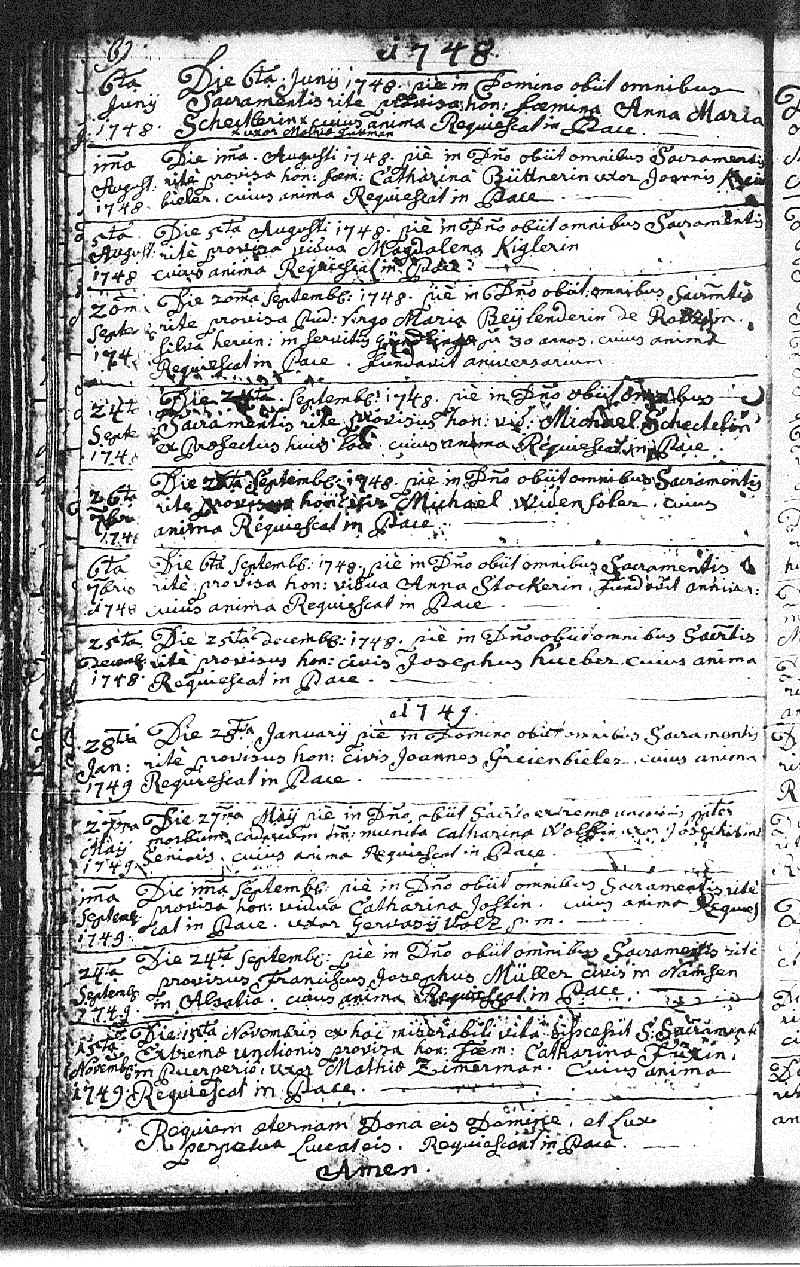 1748
6ta Die 6ta Junij 1748. piè in Domino obijt omnibus
Junij Sacramentis ritè provisa hon: foemina Anna Maria
1748. Scheitlerin cuius anima Requiescat in Pace.
uxor Mathiae
ima Die ima. Augusti 1748. piè in Dño obijt omnibus Sacramentis
August. ritè provisa hon: foem: Catharina Büttnerin uxor Joannis
1748. bieler. cuius anima Requiescat in Pace
5ta Die 5ta Augusti 1748. piè in Dño obijt omnibus Sacramentis
August. ritè provisa vidua Magdalena Kiglerin
1748 cuius anima Requiescat in Pace.
20ma Die 20ma Septemb: 1748. piè in Dño obijt omnibus Sacrntis
Septe ritè provisa pud: virgo Maria Beÿlenderin de
174 silva hercin: in servitio 30 annos. cuius anima
Requiescat in Pace. fundavit aniversarium
24ta Die 24ta Septemb: 1748. piè in Dño obijt omnibus
Septe Sacramentis ritè provisus hon: vir: Michael
1748 ex Praefectus huius loci. cuius anima Requiescat in Pace.
26ta Die Septemb: 1748. piè in Dño obijt omnibus Sacramentis
7bris ritè hon: vir Michael Widenloler. cuius
1748 anima Requiescat in Pace.
6ta Die 6ta Septemb: 1748. piè in Dño obijt omnibus Sacramentis
7bris ritè provisa hon: vidua Anna Stockerin. fundavit anniver:
1748 cuius anima Requiescat in Pace.
25ta Die 25ta Decemb: 1748. piè in Dño obijt omnibus Sacrntis
Decemb: ritè provisus hon: civis Josephus hueber. cuius anima
1748. Requiescat in Pace.
1749.
28tà Die 28ta Januarij piè in Domino obijt omnibus Sacramentis
Jan: ritè provisus hon: civis Joannes Greienbieler. cuius anima
1749 Requiescat in Pace.
27ma Die 27ma Maij piè in Dño obijt Sacro extremae unctionis
Maij morbum caducum munita Catharina Wolffin uxor
1749. Senioris. cuius anima Requiescat in Pace.
ima Die ima Septemb: piè in Dño obijt omnibus Sacramentis ritè
Septemb: provisa hon: vidua Catharina Jostin. cuius anima Requies
1749. cat in Pace. uxor Gervasij Volz p. m.
24ta Die 24ta Septemb: piè in Dño obijt omnibus Sacramentis ritè
Septemb: provisus Franciscus Josephus Müller civis in
1749. in Alsatia. cuius anima Requiescat in Pace.
15ta Die 15ta Novembris ex hac miserabili vita discessit S: Sacramento
Novemb: Extremae unctionis provisa hon: foem: Catharina Fuxin.
in Puerperio, uxor Mathiae Zimerman. Cuius anima
1749. Requiescat in Pace.
Requiem aeternam Dona eis Domine, et Lux
perpetua Luceat eis. Requiescant in Pace
Amen.